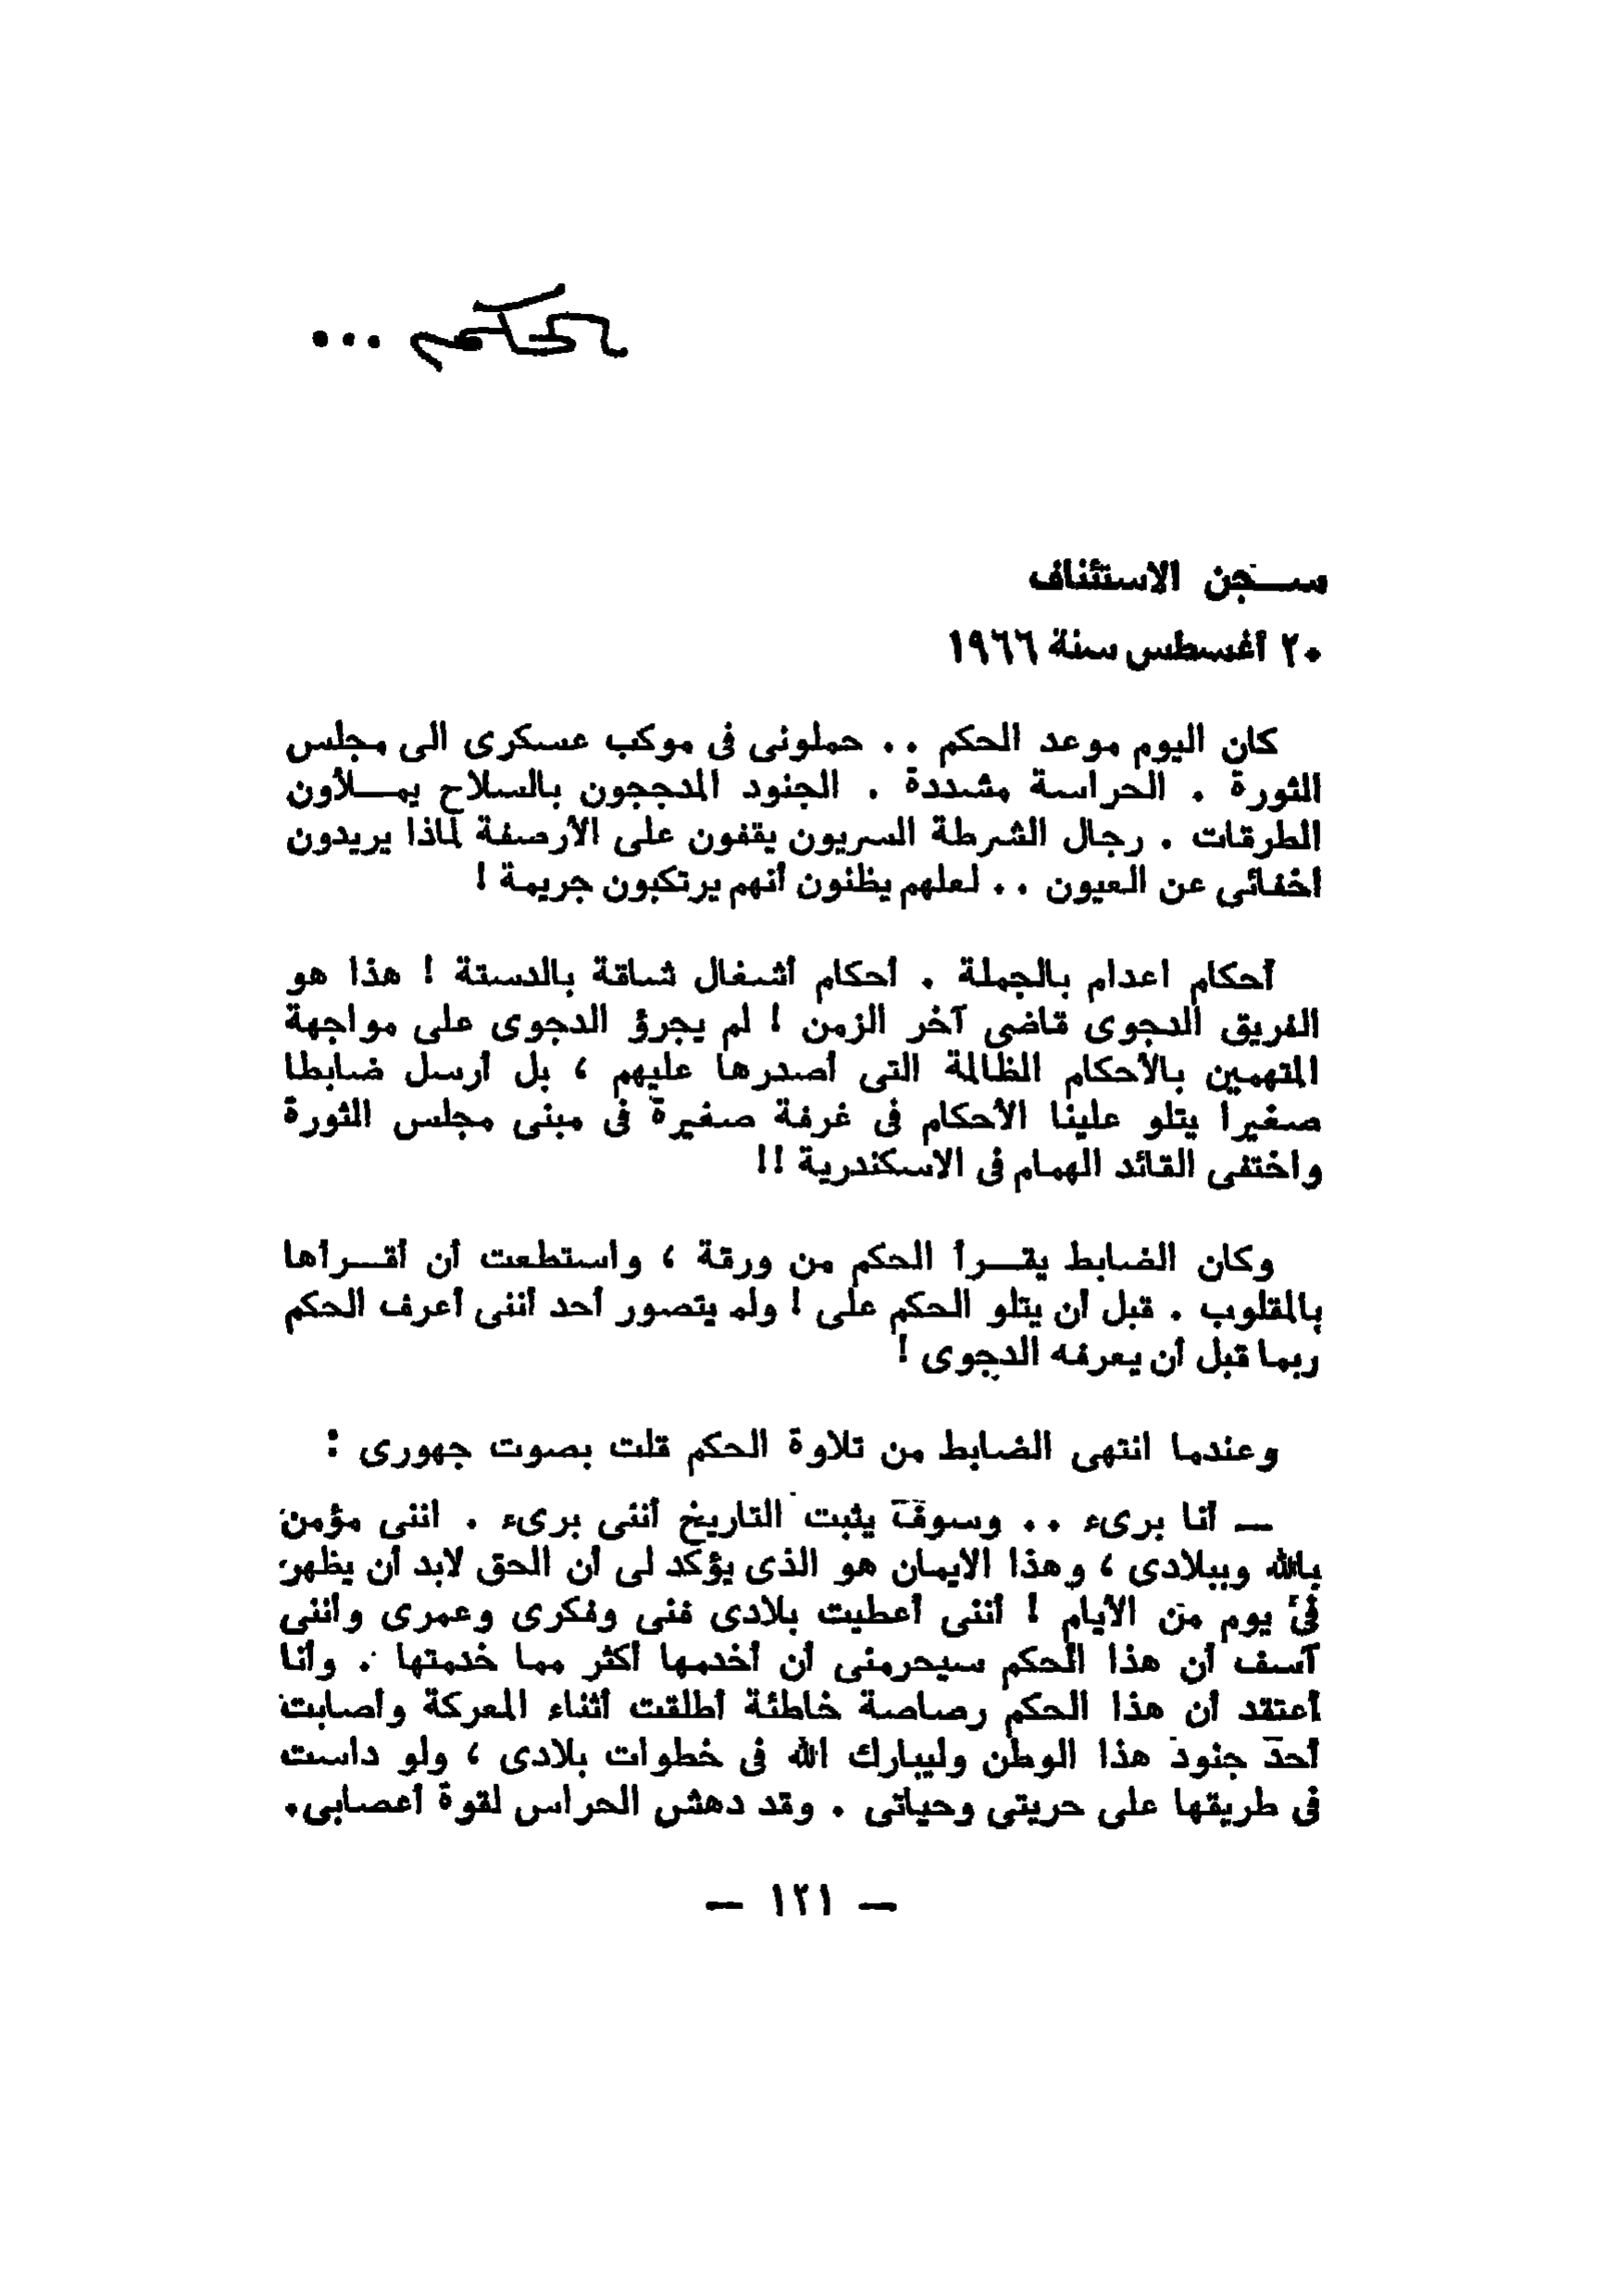 الحكم ...
سجن الاستئناف
٢٠ أغسطس سنة ١٩٦٦
كان اليوم موعد الحكم . . حملونى فى موكب عسكرى الى مجلس
الثورة . الحراسة مشددة . الجنود المدججون بالسلاح يمـلأون
الطرقات . رجال الشرطة السريون يقفون على الأرصفة لماذا يريدون
اخفائى عن العيون . . لعلهم يظنون أنهم يرتكبون جريمة !
أحكام اعدام بالجملة . أحكام أشغال شاقة بالدستة ! هذا هو
الفريق الدجوى قاضى آخر الزمن ! لم يجرؤ الدجوى على مواجهة
المتهمين بالأحكام الظالمة التى أصدرها عليهم ، بل أرسل ضابطا
صغيرا يتلو علينا الأحكام فى غرفة صغيرة فى مبنى مجلس الثورة
واختفى القائد الهمام فى الاسكندرية !!
وكان الضابط يقـرأ الحكم من ورقة ، واستطعت أن أقـرأها
بالمقلوب . قبل أن يتلو الحكم على ! ولم يتصور أحد أننى أعرف الحكم
ربما قبل أن يعرفه الدجوى !
وعندما انتهى الضابط من تلاوة الحكم قلت بصوت جهورى :
— أنا برىء . . وسوف يثبت التاريخ أننى برىء . اننى مؤمن
بالله وببلادى ، وهذا الايمان هو الذى يؤكد لى أن الحق لابد أن يظهر
فى يوم من الأيام ! أننى أعطيت بلادى فنى وفكرى وعمرى وأننى
آسف أن هذا الحكم سيحرمنى أن أخدمها أكثر مما خدمتها . وأنا
أعتقد أن هذا الحكم رصاصة خاطئة أطلقت أثناء المعركة وأصابت
أحد جنود هذا الوطن وليبارك الله فى خطوات بلادى ، ولو داست
فى طريقها على حريتى وحياتى . وقد دهش الحراس لقوة أعصابى.
— ١٢١ —